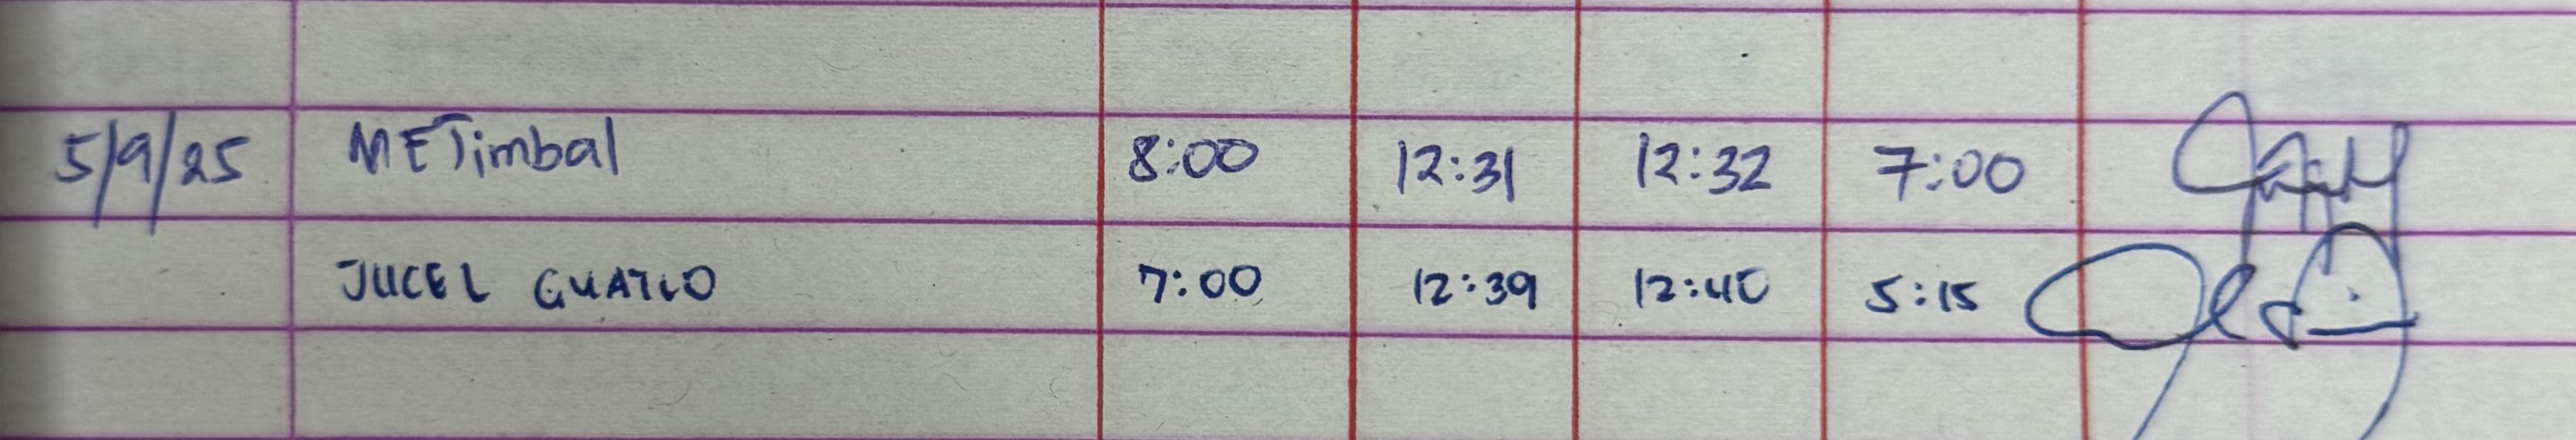 5/9/25 METimbal 8:00 12:31 12:32 7:00
JUCEL GUATLO 7:00 12:39 12:40 5:15